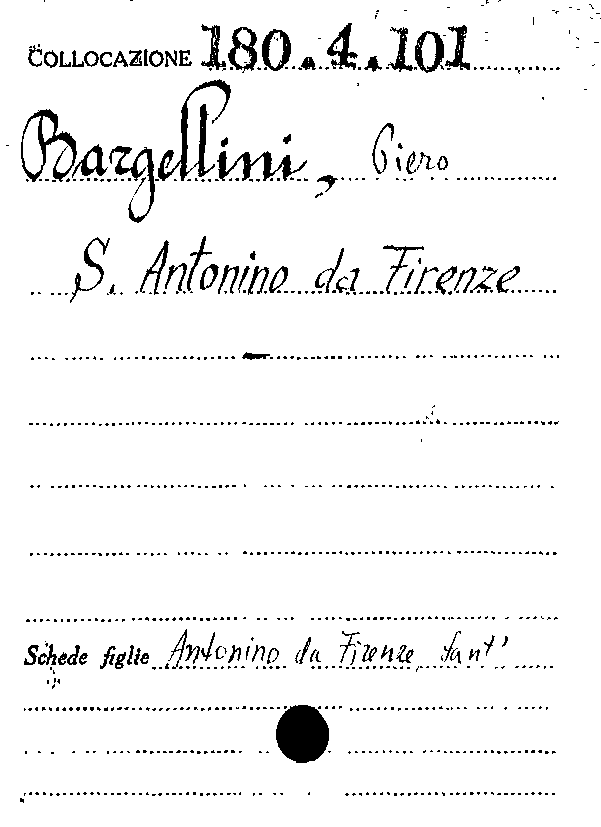 COLLOCAZIONE 180.4.101
Bargellini, Piero
S. Antonino da Firenze
Schede figlie Antonino da Firenze, Sant'